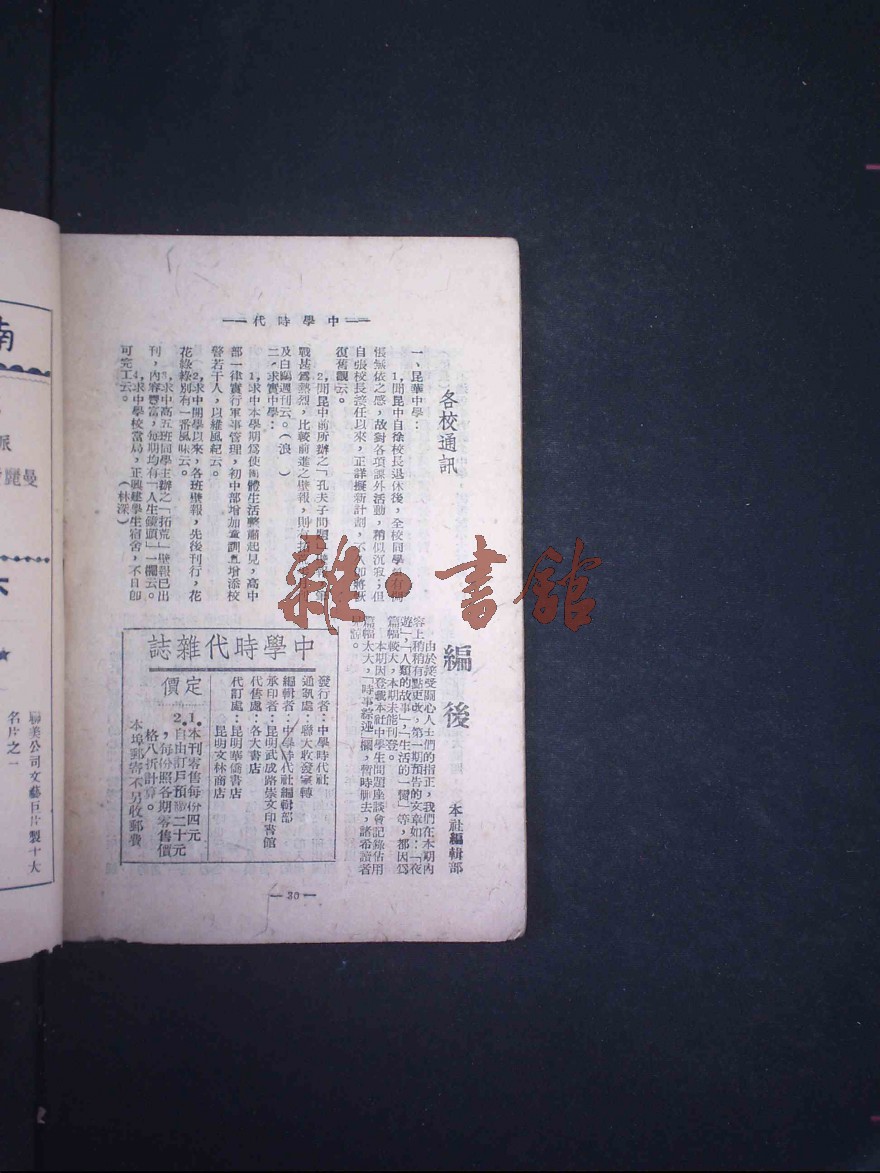 中學時代
各校通訊
一、昆華中學：
1,聞昆中自徐校長退休後，全校同學
悵無依之感，故對各項課外活動，稍似沉寂；但
自張校長接任以來，正詳擬新計劃，不
復舊觀云。
2,聞昆中前所辦之「孔夫子
戰甚為熱烈，比較前進之壁報，則
及白鷗週刊云。（浪）
二、求實中學：
1,求中本學期為使團體生活整肅起見，高中
部一律實行軍事管理，初中部增加童訓且增添校
警若干人，以維風紀云。
2,求中開學以來，各班壁報，先後刊行，花
花綠綠別有一番風味云。
3,求中高五班同學主辦之「拓荒」壁報已出
刊，內容豐富，每期均有「人生鏡頭」一欄云。
4,求中學校當局，正興建學生宿舍，不日即
可完工云。（林深）
編後
本社編輯部
由於接受關心人士們的指正，我們在本期內
容上稍稍有點更改，第一期預告的文章如：「夜
遊」，「人類的故事」，「生活的一
」等，都因為
篇幅較大，本期未能刊登。
本期因登載本社中學生問題座談會記錄佔用
篇幅太大，「時事綜述」欄，暫時刪去，諸希讀者
諒。
中學時代雜誌
發行者：中學時代社
通訊處：聯大收發室轉
編輯者：中學時代社編輯部
承印者：昆明武成路崇文印書館
代售處：各大書店
代訂處：昆明華僑書店
昆明文林商店
定價
1.本刊零售每份四元
2.自由訂戶預繳二十元
，每份照各期零售價
格八折計算。
本埠郵寄不另收郵費
—30—
雜·書館
南
派
麗曼
聯美公司文藝巨片製十大
名片之一